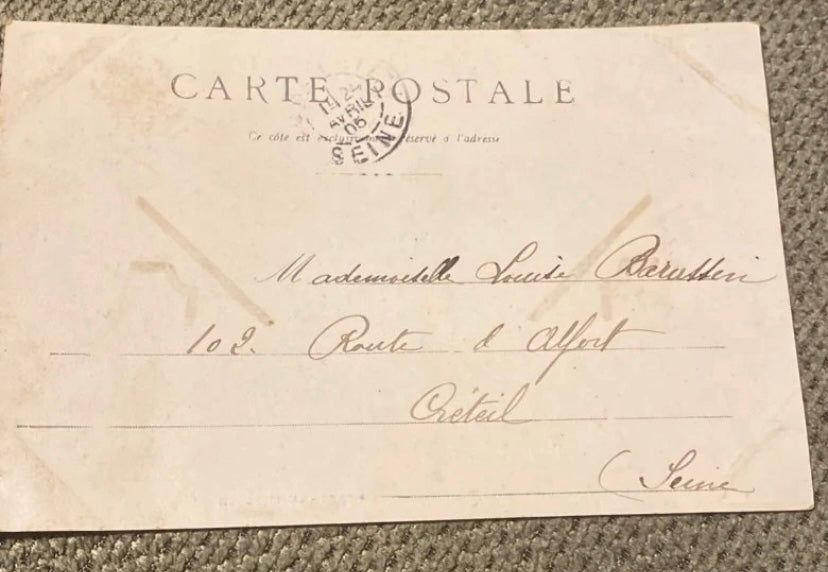 CARTE POSTALE
24
AVRIL
05
SEINE
Ce côté est exclusivement réservé à l'adresse
Mademoiselle Louise
102. Route d'Alfort
Créteil
(Seine